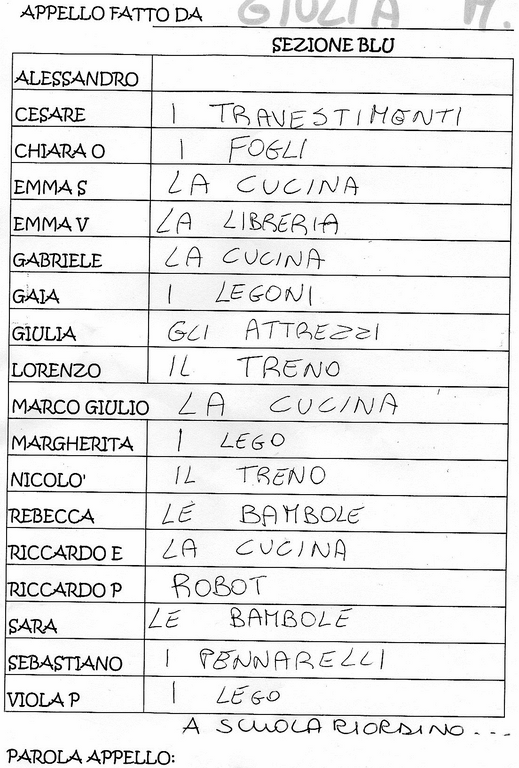 APPELLO FATTO DA GIULIA M.
SEZIONE BLU
ALESSANDRO
CESARE I TRAVESTIMENTI
CHIARA O I FOGLI
EMMA S LA CUCINA
EMMA V LA LIBRERIA
GABRIELE LA CUCINA
GAIA I LEGONI
GIULIA GLI ATTREZZI
LORENZO IL TRENO
MARCO GIULIO LA CUCINA
MARGHERITA I LEGO
NICOLO' IL TRENO
REBECCA LE BAMBOLE
RICCARDO E LA CUCINA
RICCARDO P ROBOT
SARA LE BAMBOLE
SEBASTIANO I PENNARELLI
VIOLA P I LEGO
A SCUOLA RIORDINO...
PAROLA APPELLO: